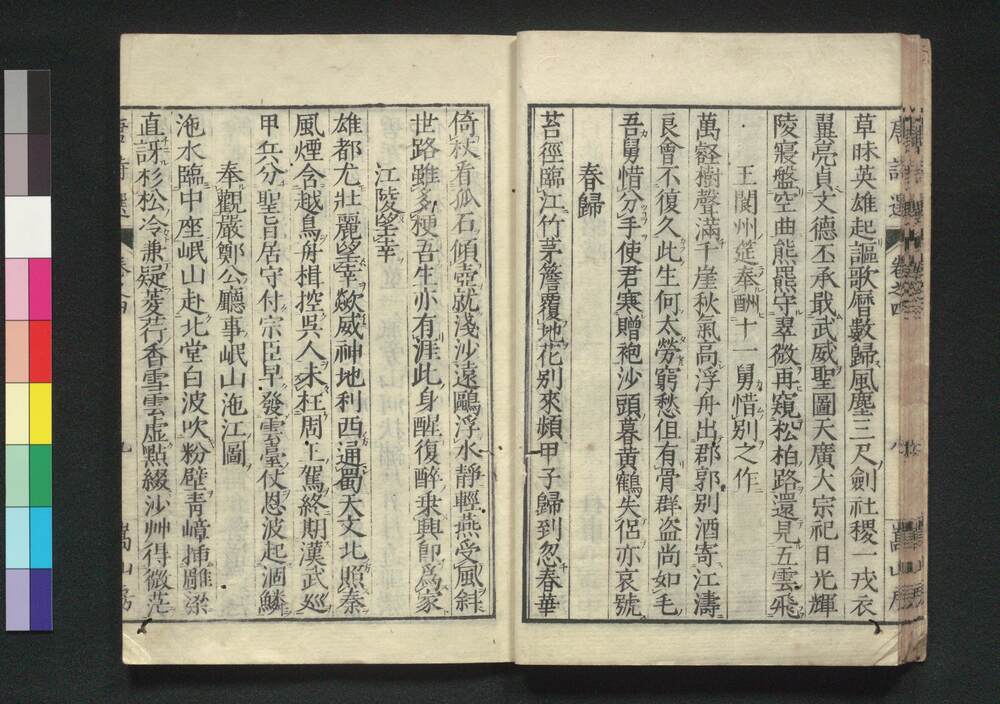 唐詩選 卷之四 八 嵩山房
草昧英雄起謳歌曆數歸風塵三尺劍社稷一戎衣
翼亮貞文德丕承戢武威聖圖天廣大宗祀日光輝
陵寢盤空曲熊羆守翠微再窺松柏路還見五雲飛
王閬州筵奉酬十一舅惜別之作
萬壑樹聲滿千崖秋氣高浮舟出郡郭別酒寄江濤
良會不復久此生何太勞窮愁但有骨群盗尚如毛
吾舅惜分手使君寒贈袍沙頭暮黄鶴失侶亦哀號
春歸
苔徑臨江竹茅簷覆地花別來頻甲子歸到忽春華
倚杖看孤石傾壺就淺沙遠鷗浮水靜輕燕受風斜
世路雖多梗吾生亦有涯此身醒復醉乗興即爲家
江陵望幸
雄都尤壯麗望幸歘威神地利西通蜀天文北照秦
風煙含越鳥舟楫控吳人未枉周王駕終期漢武巡
甲兵分聖旨居守付宗臣早發雲臺仗恩波起涸鱗
奉觀嚴鄭公廳事岷山沲江圖
沲水臨中座岷山赴北堂白波吹粉壁青嶂挿雕梁
直訝杉松冷兼疑菱荇香雪雲虚點綴沙艸得微茫
唐詩選 卷之四 九 嵩山房